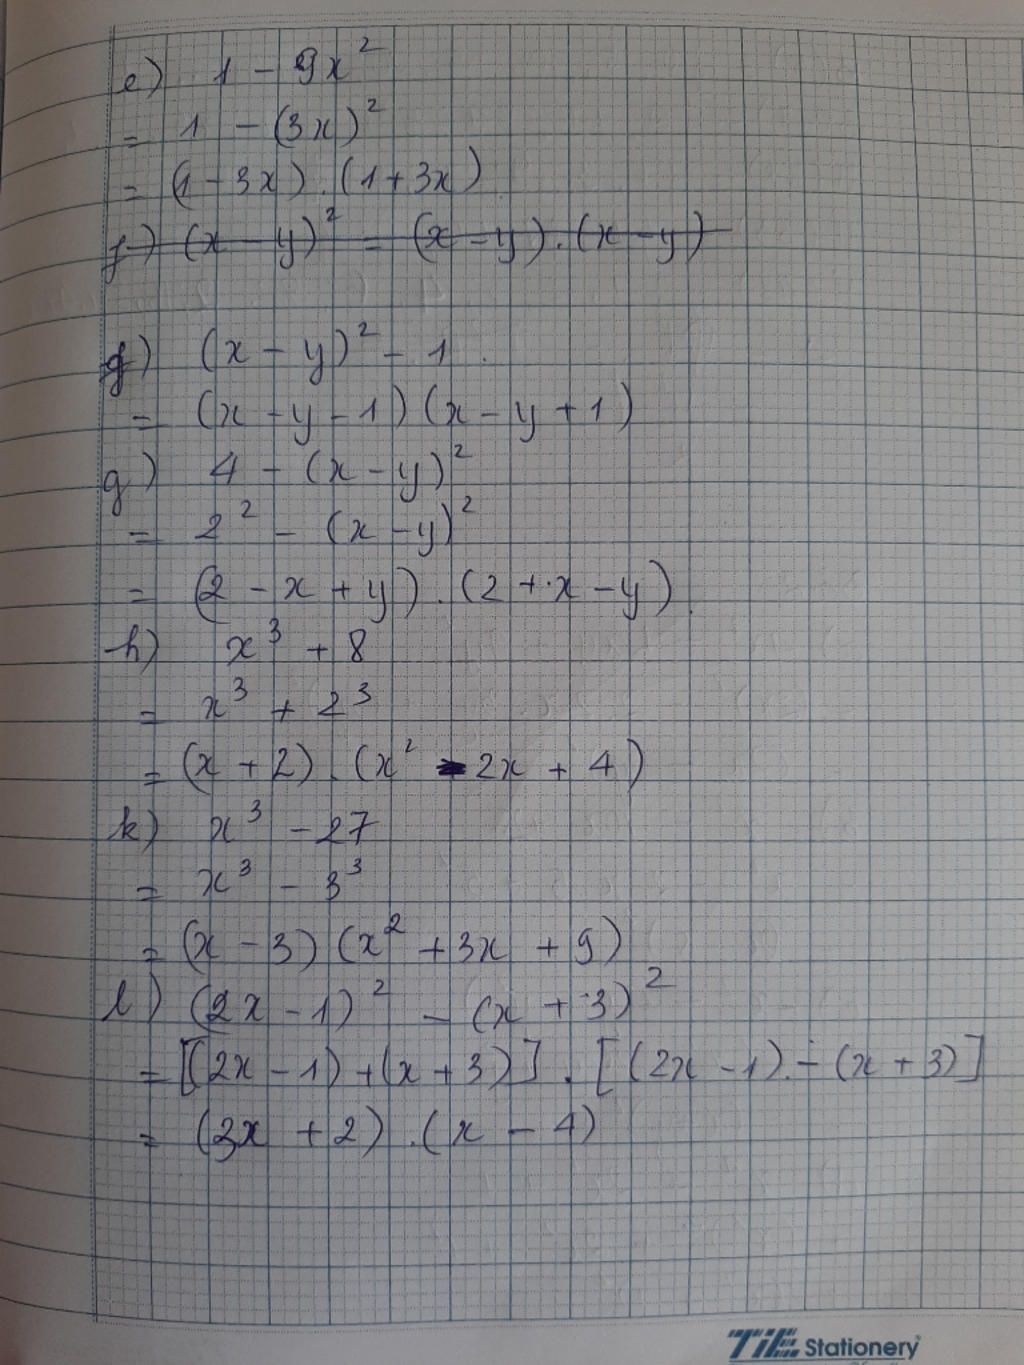 e) 1 - 9x²
= 1 - (3x)²
= (1 - 3x) . (1 + 3x)
f) (x - y)² = (x - y) . (x - y)
f) (x - y)² - 1
= (x - y - 1) (x - y + 1)
g) 4 - (x - y)²
= 2² - (x - y)²
= (2 - x + y) . (2 + x - y)
h) x³ + 8
= x³ + 2³
= (x + 2) . (x² - 2x + 4)
k) x³ - 27
= x³ - 3³
= (x - 3) (x² + 3x + 9)
l) (2x - 1)² - (x + 3)²
= [(2x - 1) + (x + 3)] . [(2x - 1) - (x + 3)]
= (3x + 2) . (x - 4)
TiE Stationery